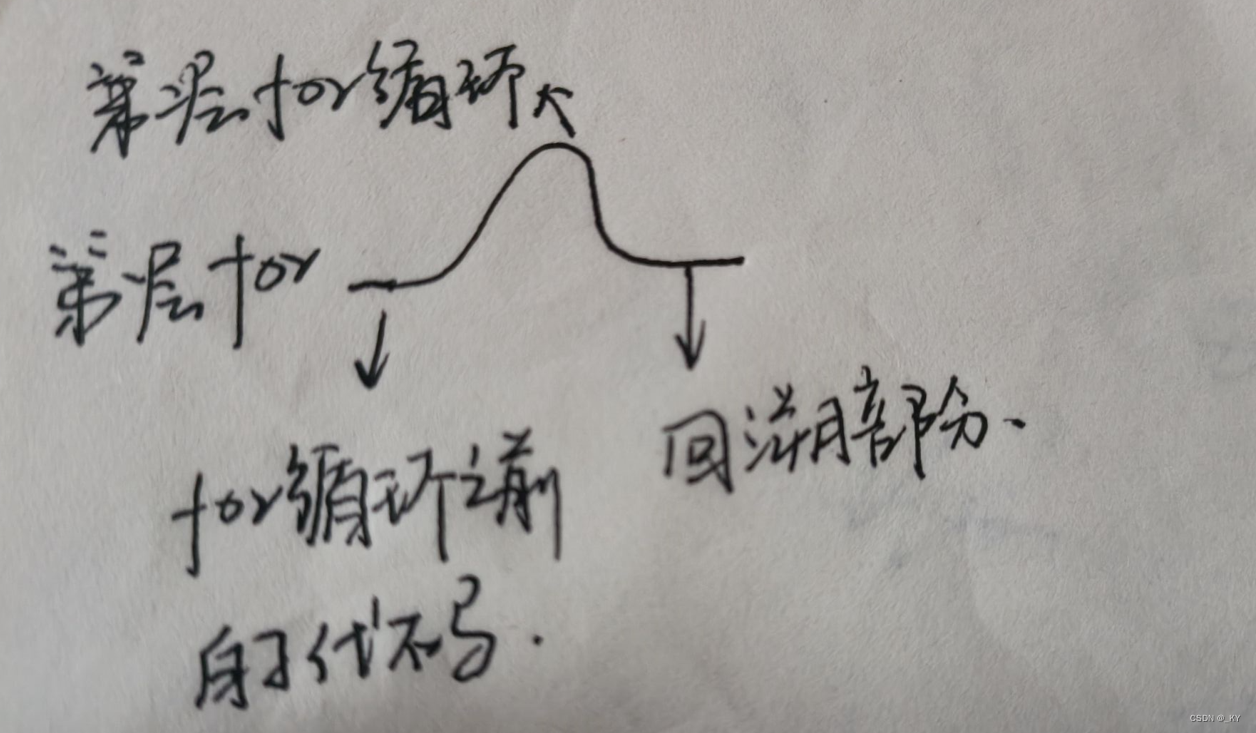 第二层for循环
第一层for
回溯部分.
for循环之前
的代码.
CSDN @_KY